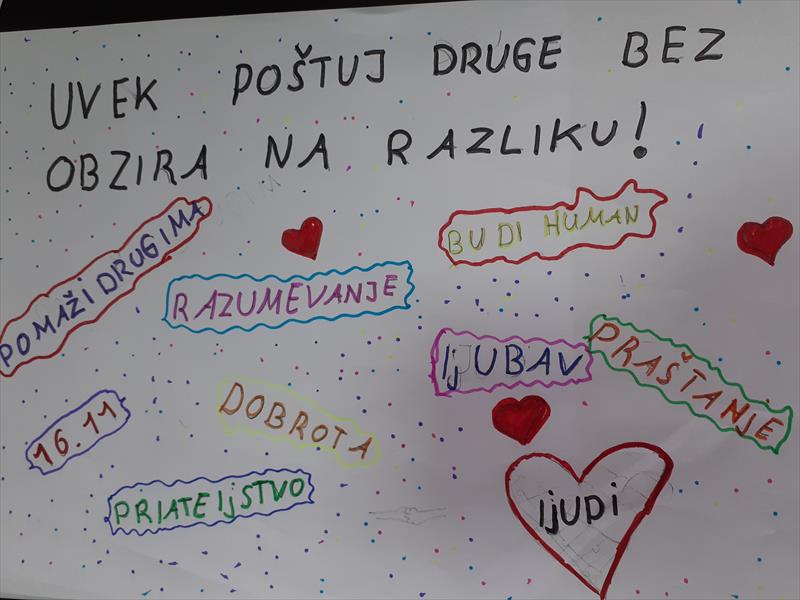 UVEK POŠTUJ DRUGE BEZ
OBZIRA NA RAZLIKU!
POMAŽI DRUGIMA
BUDI HUMAN
RAZUMEVANJE
ljUBAV
PRAŠTANJE
16.11
DOBROTA
PRIATEljSTVO
ljUDi